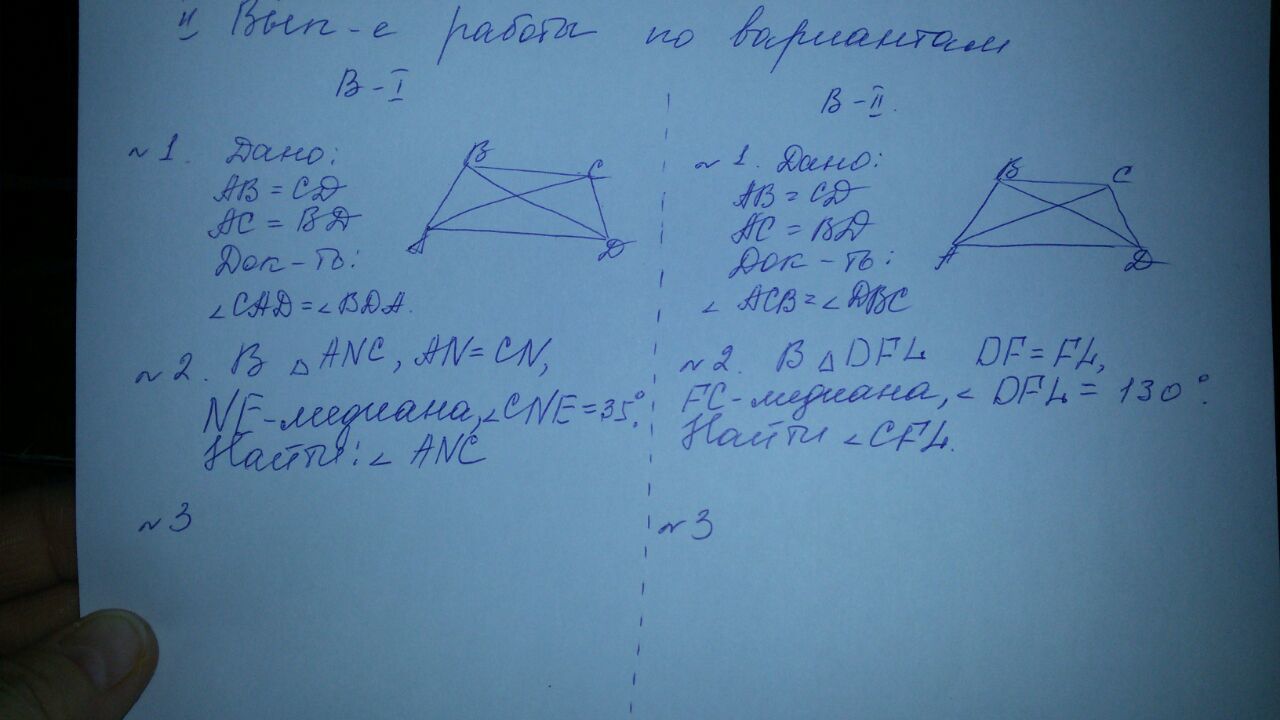 II Вып-е работы по вариантам
В-I
~1. Дано:
AB = CD
AC = BD
Док-ть:
∠CAD = ∠BDA.
B
C
A
D
~2. В △ANC, AN = CN,
NE-медиана, ∠CNE = 35°.
Найти: ∠ANC
~3
В-II.
~1. Дано:
AB = CD
AC = BD
Док-ть:
∠ACB = ∠DBC
B
C
A
D
~2. В △DFL DF = FL,
FC-медиана, ∠DFL = 130°.
Найти ∠CFL.
~3